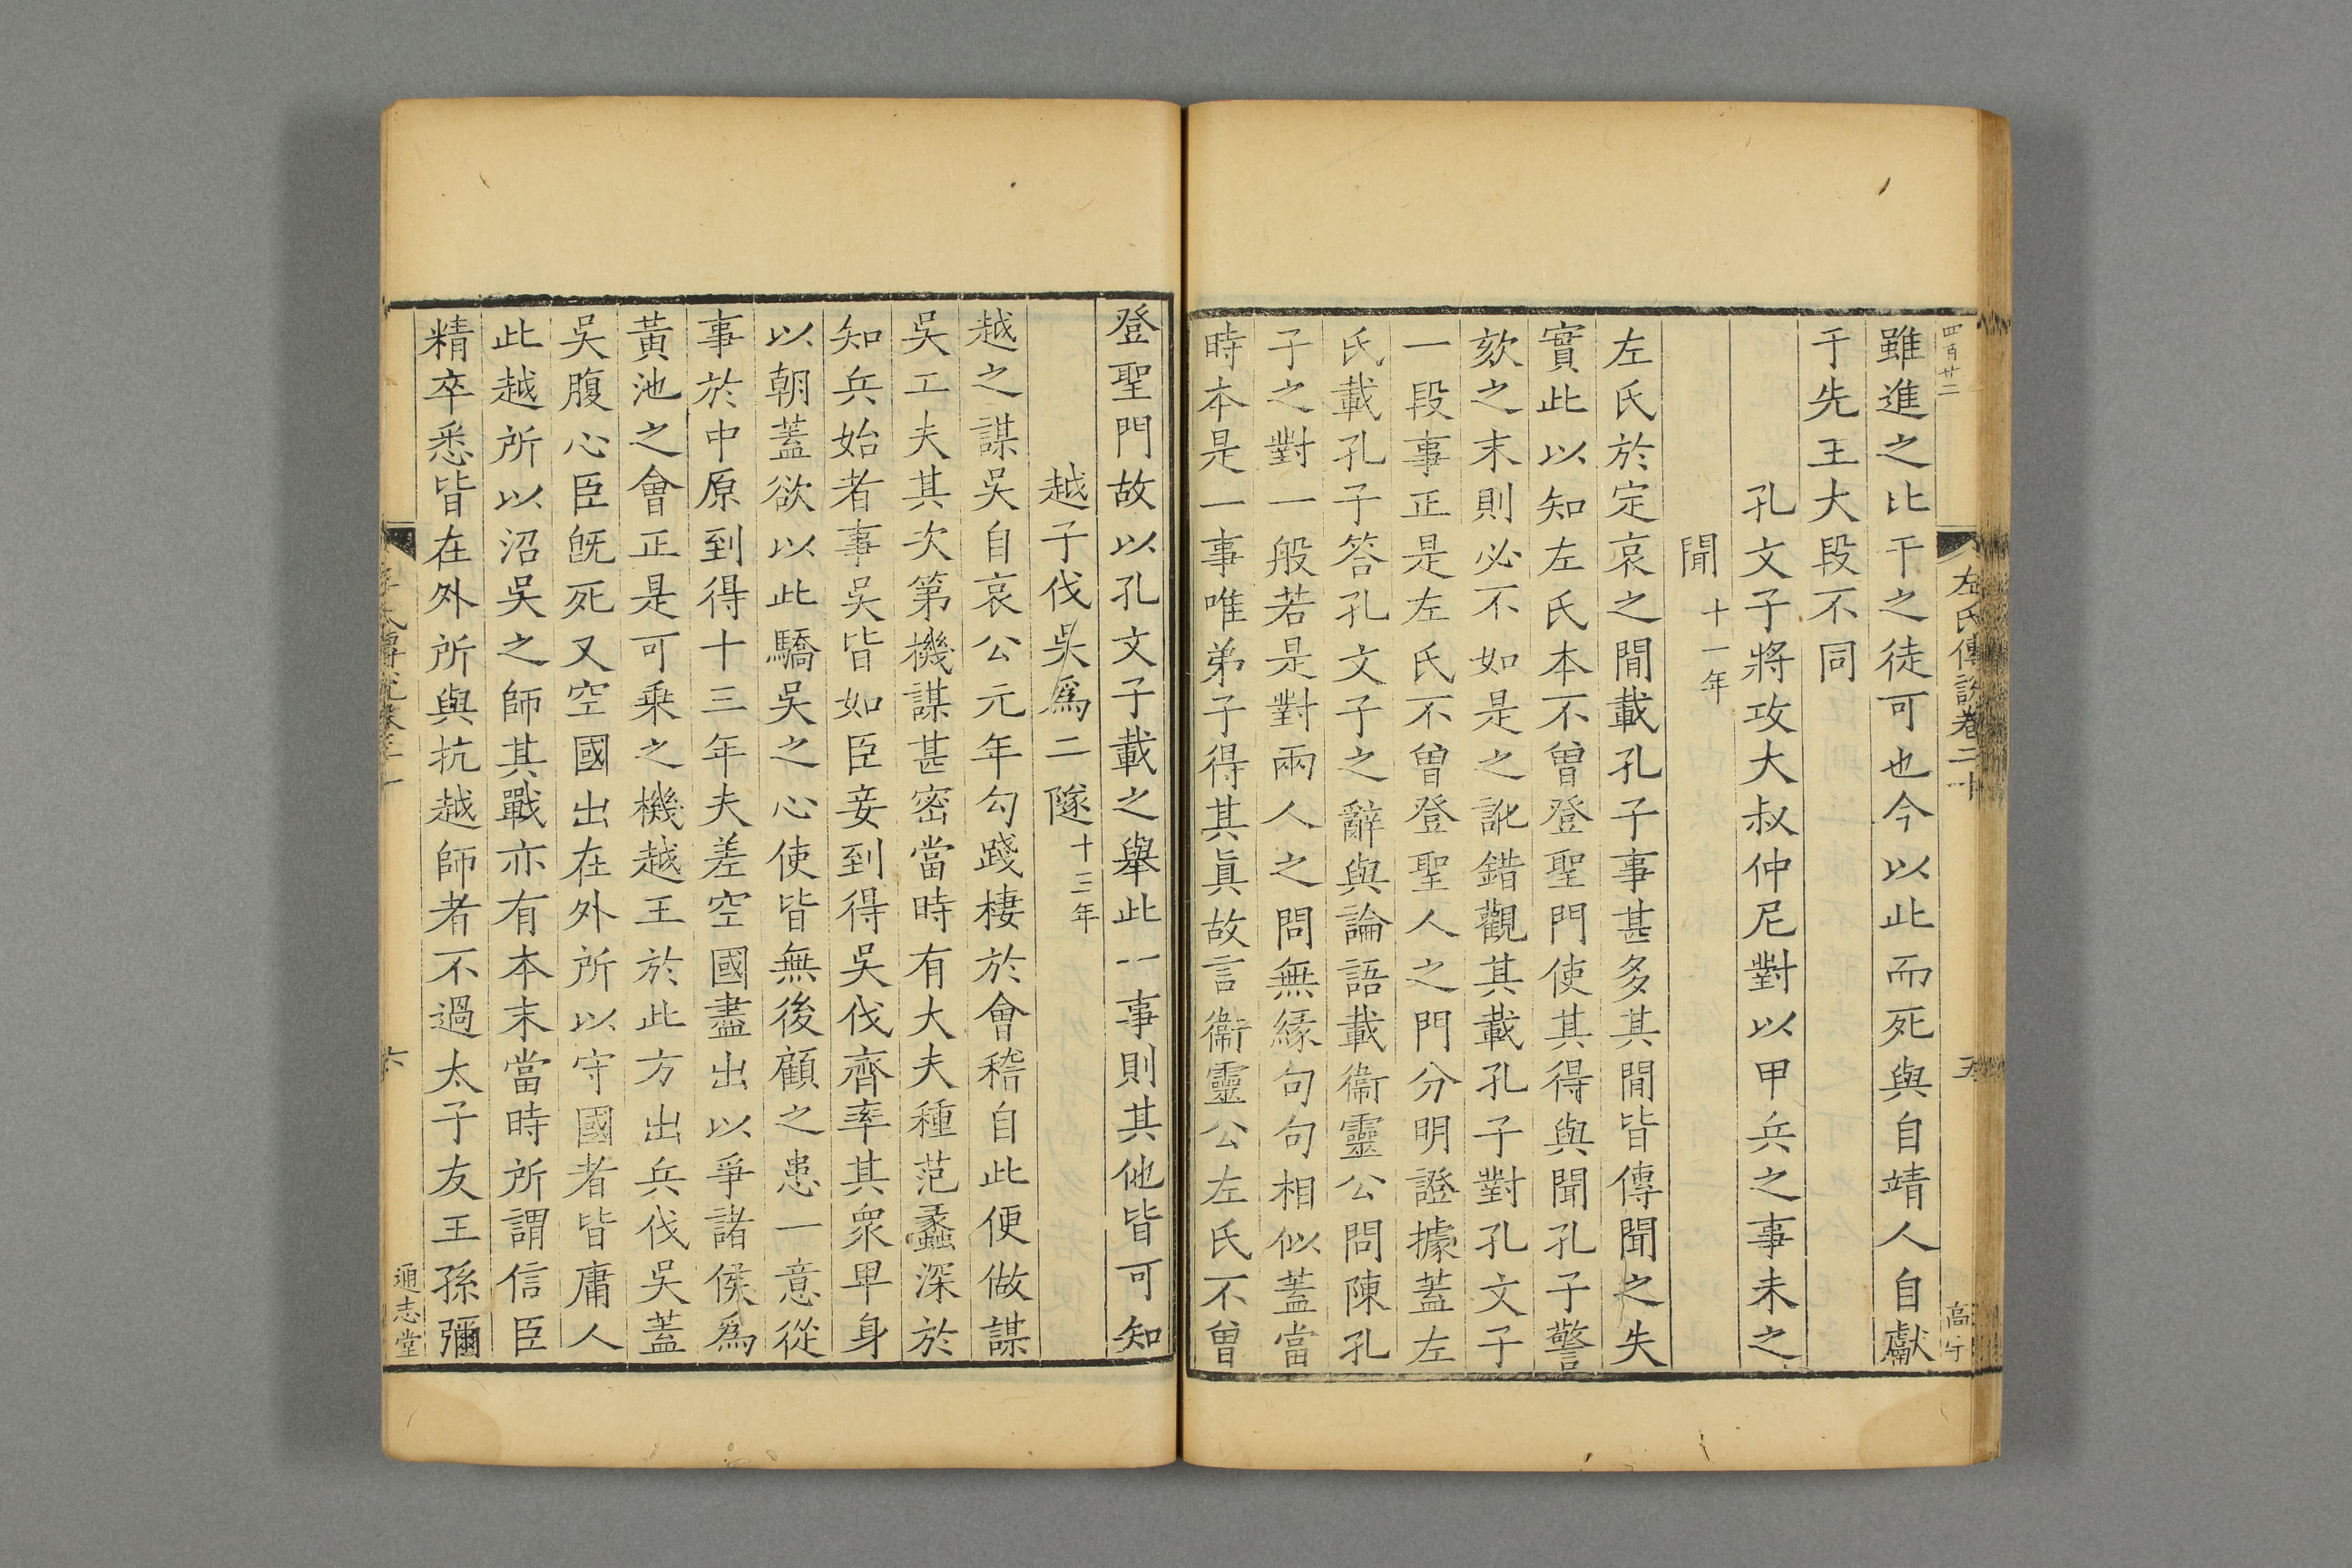 四百廿二
左氏傳說卷二十
五
雖進之比干之徒可也今以此而死與自靖人自獻
于先王大段不同
孔文子將攻大叔仲尼對以甲兵之事未之
聞十一年
左氏於定哀之閒載孔子事甚多其閒皆傳聞之失
實此以知左氏本不曾登聖門使其得與聞孔子警
欬之末則必不如是之訛錯觀其載孔子對孔文子
一段事正是左氏不曾登聖人之門分明證據蓋左
氏載孔子答孔文子之辭與論語載衞靈公問陳孔
子之對一般若是對兩人之問無緣句句相似蓋當
時本是一事唯弟子得其眞故言衞靈公左氏不曾
登聖門故以孔文子載之舉此一事則其他皆可知
越子伐吳爲二隧十三年
越之謀吳自哀公元年勾踐棲於會稽自此便做謀
吳工夫其次第機謀甚密當時有大夫種范蠡深於
知兵始者事吳皆如臣妾到得吳伐齊率其衆卑身
以朝蓋欲以此驕吳之心使皆無後顧之患一意從
事於中原到得十三年夫差空國盡出以爭諸侯爲
黃池之會正是可乗之機越王於此方出兵伐吳蓋
吳腹心臣旣死又空國出在外所以守國者皆庸人
此越所以沼吳之師其戰亦有本末當時所謂信臣
精卒悉皆在外所與抗越師者不過太子友王孫彌
六
通志堂